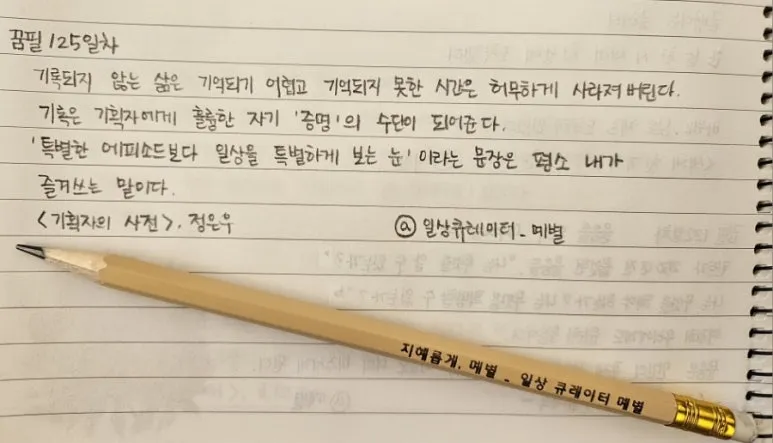 꿈필 125일차
기록되지 않는 삶은 기억되기 어렵고 기억되지 못한 시간은 허무하게 사라져버린다.
기록은 기획자에게 훌륭한 자기 '증명'의 수단이 되어준다.
'특별한 에피소드보다 일상을 특별하게 보는 눈'이라는 문장은 평소 내가
즐겨쓰는 말이다.
<기획자의 사전>, 정은우 ⓐ 일상큐레이터_메별
지혜롭게, 메별 - 일상 큐레이터 메별